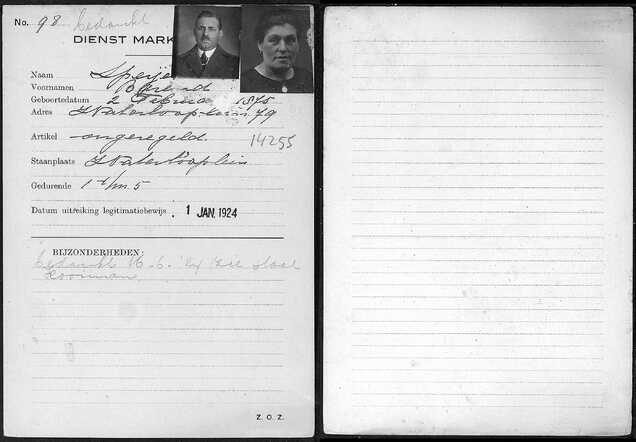 No. 98 bedankt
DIENST MARK
Naam Speije
Voornamen Barend
Geboortedatum 2 Februa 1875
Adres Waterlooplein 79
Artikel ongeregeld.
14255
Staanplaats Waterlooplein
Gedurende 1 t/m 5
Datum uitreiking legitimatiebewijs. 1 JAN. 1924
BIJZONDERHEDEN:
bedankt 16-6-
Z. O. Z.